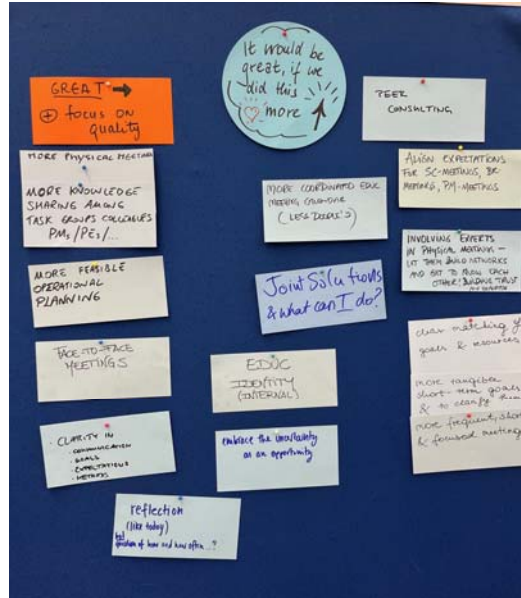 It would be
great, if we
did this
more
GREAT →
+ focus on
quality
PEER
CONSULTING
MORE PHYSICAL MEETINGS
MORE KNOWLEDGE
SHARING AMONG
TASK GROUPS COLLEAGUES
PMs/PEs/...
MORE COORDINATED EDUC
MEETING CALENDAR
(LESS DOODLE'S)
ALIGN EXPECTATIONS
FOR SC-MEETINGS, BR-
MEETING, PM-MEETINGS
INVOLVING EXPERTS
IN PHYSICAL MEETINGS –
LET THEM BUILD NETWORKS
AND GET TO KNOW EACH
OTHER! BUILDING TRUST
MORE FEASIBLE
OPERATIONAL
PLANNING
Joint Solutions
& what can I do?
FACE-TO-FACE
MEETINGS
EDUC
IDENTITY
(INTERNAL)
clear matching
goals & resources
more tangible
short-term goals
& to clarify them
more frequent, short
& focused meetings
CLARITY IN
· COMMUNICATION
· GOALS
· EXPECTATIONS
· METHODS
embrace the uncertainty
as an opportunity
reflection
(like today)
but
question of how and how often...?